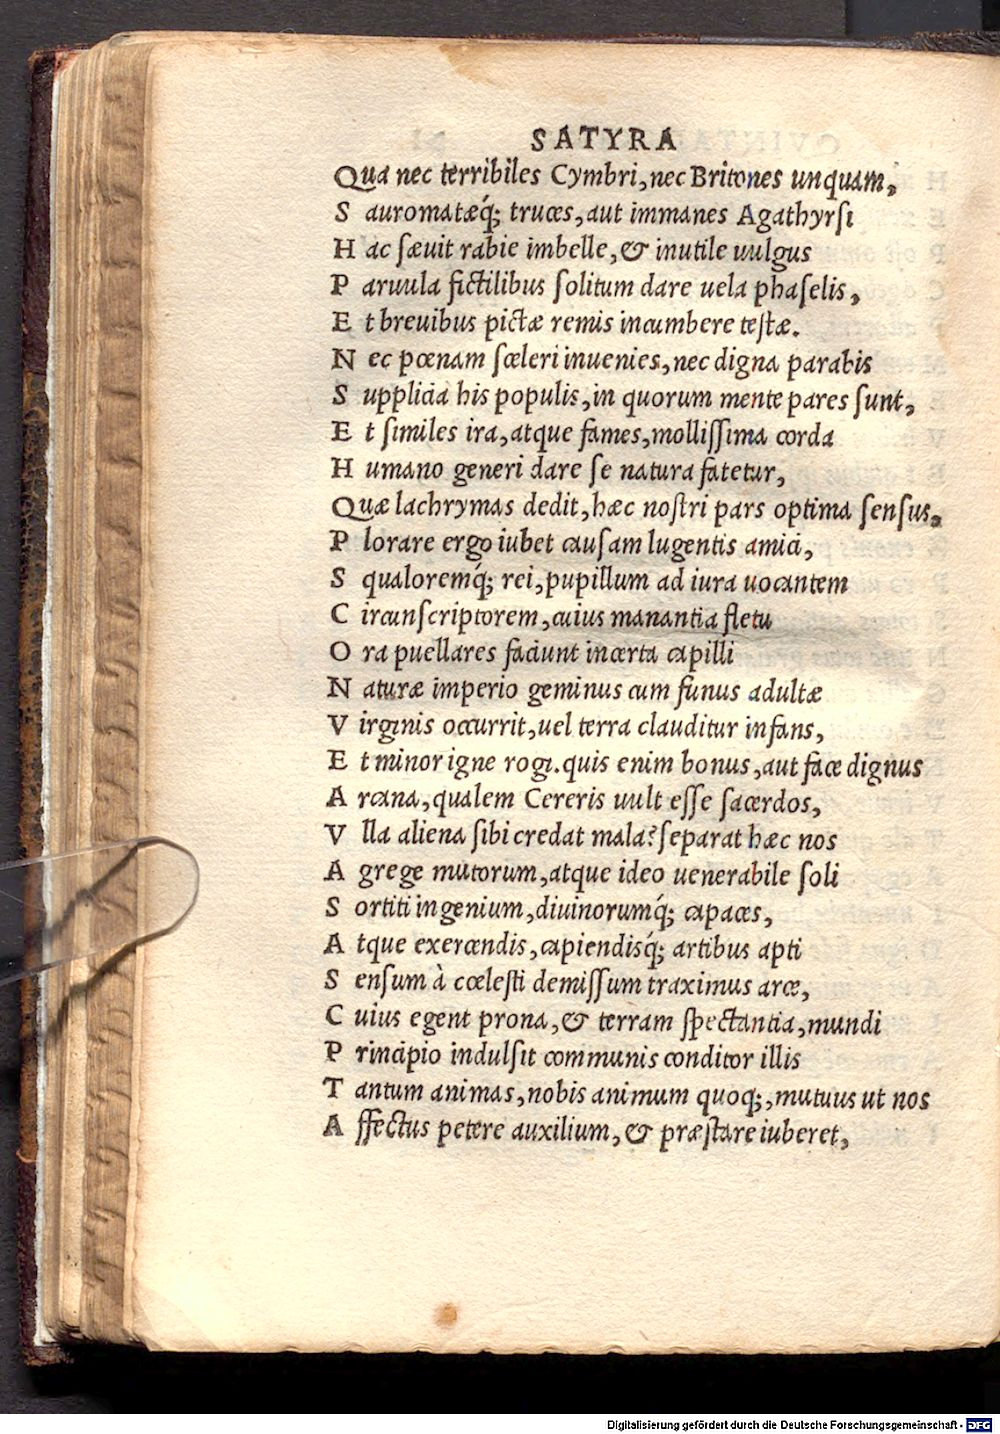 SATYRA
Qua nec terribiles Cymbri, nec Britones unquam,
S auromatæq́; truces, aut immanes Agathyrsi
H ac sæuit rabie imbelle, & inutile uulgus
P aruula fictilibus solitum dare uela phaselis,
E t breuibus pictæ remis incumbere testæ.
N ec pœnam sceleri inuenies, nec digna parabis
S upplicia his populis, in quorum mente pares sunt,
E t similes ira, atque fames, mollissima corda
H umano generi dare se natura fatetur,
Quæ lachrymas dedit, hæc nostri pars optima sensus.
P lorare ergo iubet causam lugentis amici,
S qualoremq́; rei, pupillum ad iura uocantem
C ircunscriptorem, cuius manantia fletu
O ra puellares faciunt incerta capilli
N aturæ imperio geminus cum funus adultæ
V irginis occurrit, uel terra clauditur infans,
E t minor igne rogi. quis enim bonus, aut face dignus
A rcana, qualem Cereris uult esse sacerdos,
V lla aliena sibi credat mala? separat hæc nos
A grege mutorum, atque ideo uenerabile soli
S ortiti ingenium, diuinorumq́; capaces,
A tque exercendis, capiendisq́; artibus apti
S ensum à cœlesti demissum traximus arce,
C uius egent prona, & terram spectantia, mundi
P rincipio indulsit communis conditor illis
T antum animas, nobis animum quoq;, mutuus ut nos
A ffectus petere auxilium, & præstare iuberet,
Digitalisierung gefördert durch die Deutsche Forschungsgemeinschaft - DFG